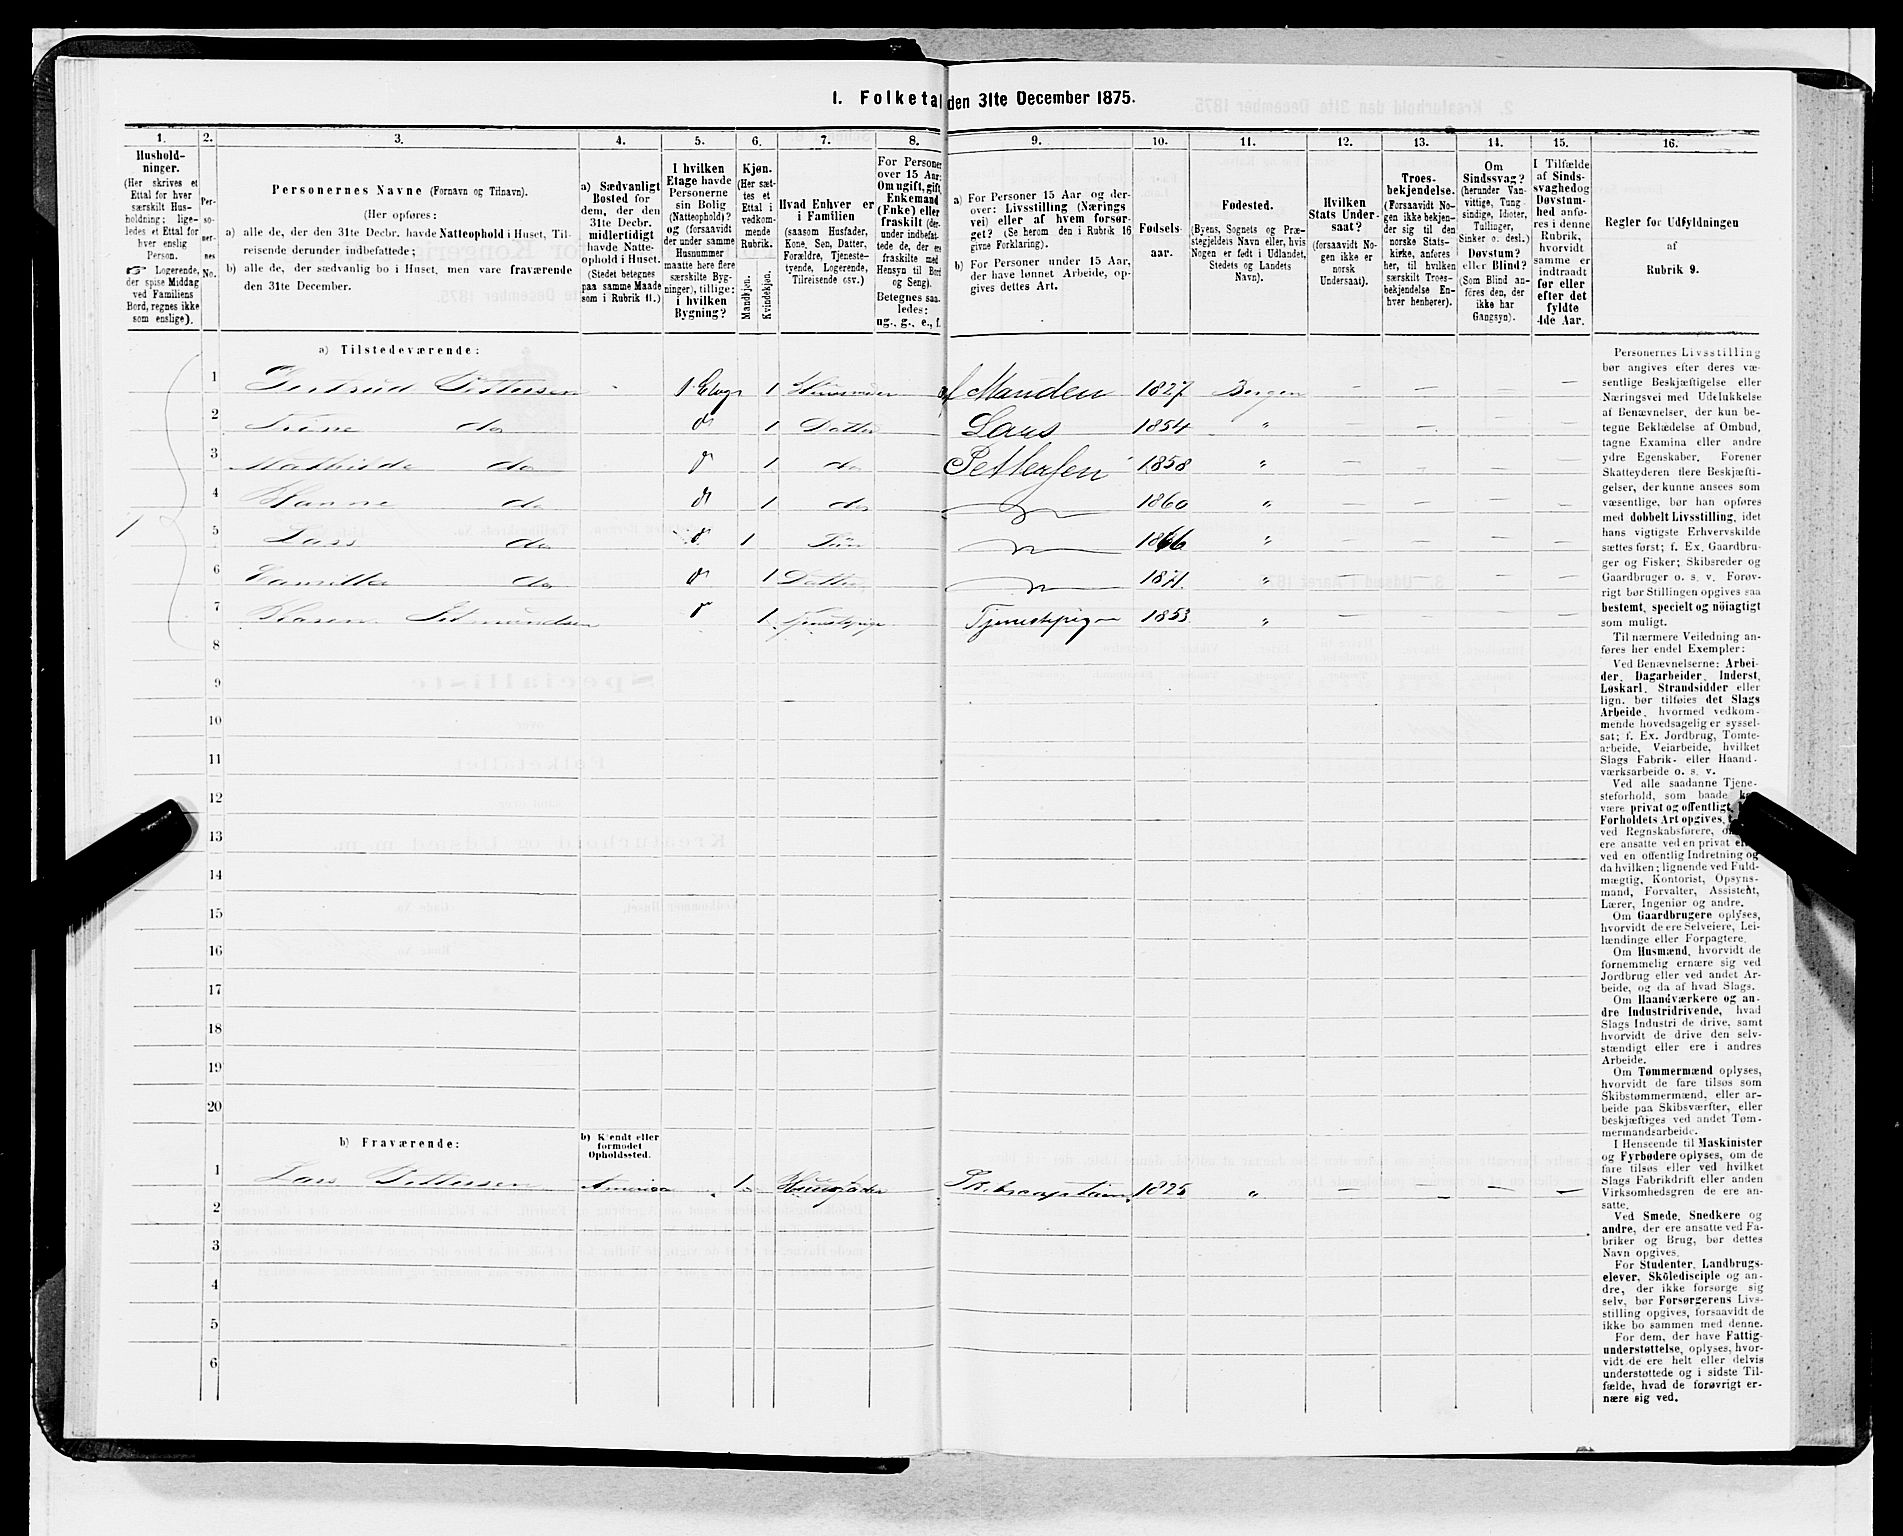 1. Folketal den 31te December 1875.
1.
Hushold-
ninger.
(Her skrives et
Ettal for hver
særskilt Hus-
holdning; lige-
ledes et Ettal for
hver enslig
Person.
☞ Logerende,
der spise Middag
ved Familiens
Bord, regnes ikke
som enslige).
2.
Per-
so-
ner-
nes
No.
3.
Personernes Navne (Fornavn og Tilnavn).
(Her opføres:
a) alle de, der den 31te Decbr. havde Natteophold i Huset, Til-
reisende derunder indbefattede;
b) alle de, der sædvanlig bo i Huset, men vare fraværende
den 31te December.
4.
a) Sædvanligt
Bosted for
dem, der den
31te Decbr.
midlertidigt
havde Natte-
ophold i Huset.
(Stedet betegnes
paa samme Maade
som i Rubrik 11.)
5.
I hvilken
Etage havde
Personerne
sin Bolig
(Natteophold)?
og (forsaavidt
der under samme
Husnummer
maatte høre flere
særskilte Byg-
ninger), tillige:
i hvilken
Bygning?
6.
Kjøn.
(Her sæt-
tes et
Ettal i
vedkom-
mende
Rubrik.
Mandkjøn.
Kvindekjøn.
7.
Hvad Enhver er
i Familien
(saasom Husfader,
Kone, Søn, Datter,
Forældre, Tjeneste-
tyende, Logerende,
Tilreisende osv.)
8.
For Personer
over 15 Aar:
Om ugift, gift,
Enkemand
(Enke) eller
fraskilt (der-
under indbefat-
tede de, der ere
fraskilte med
Hensyn til Bord
og Seng).
Betegnes saa-
ledes:
ug., g., e., f.
9.
a) For Personer 15 Aar og der-
over: Livsstilling (Nærings
vei) eller af hvem forsør-
get? (Se herom den i Rubrik 16
givne Forklaring).
b) For Personer under 15 Aar,
der have lønnet Arbeide, op-
gives dettes Art.
10.
Fødsels-
aar.
11.
Fødested.
(Byens, Sognets og Præ-
stegjeldets Navn eller, hvis
Nogen er født i Udlandet,
Stedets og Landets
Navn).
12.
Hvilken
Stats Under-
saat?
(forsaavidt No-
gen ikke er
norsk
Undersaat).
13.
Troes-
bekjendelse.
(Forsaavidt No-
gen ikke bekjen-
der sig til den
norske Stats-
kirke, anføres
her, til hvilken
særskilt Troes-
bekjendelse En-
hver henhører).
14.
Om
Sindssvag?
(herunder Van-
vittige, Tung-
sindige, Idioter,
Tullinger,
Sinker o. desl.)
Døvstum?
eller Blind?
(Som Blind an-
føres den, der
ikke har
Gangsyn).
15.
I Tilfælde
af Sinds-
svaghed og
Døvstum-
hed anfø-
res i denne
Rubrik,
hvorvidt
samme er
indtraadt
før eller
efter det
fyldte
4de Aar.
16.
Regler for Udfyldningen
af
Rubrik 9.
a) Tilstedeværende:
1 Gertrud Pettersen - 1 Etage 1 Huusmoder af Manden 1827 Bergen — — — —
2 Trine do do 1 Datter Lars 1854 " — — — —
3 Mathilde do do 1 do Pettersen 1858 " — — — —
4 Hanne do do 1 do 1860 " — — — —
1
5 Lars do do 1 Søn 1866 " — — — —
6 Camilla do do 1 Datter 1871 " — — — —
7 Karen do 1 Tjenestepige Tjenestepige 1853 " — — — —
8
9
10
11
12
13
14
15
16
17
18
19
20
b) Fraværende:
b) Kjendt eller
formodet
Opholdssted.
1 Lars Pettersen America 1 Huusfader Skibscaptain 1825 " — — — —
2
3
4
5
6
Personernes Livsstilling
bør angives efter deres væ-
sentlige Beskjæftigelse eller
Næringsvei med Udelukkelse
af Benævnelser, der kun be-
tegne Beklædelse af Ombud,
tagne Examina eller andre
ydre Egenskaber. Forener
Skatteyderen flere Beskjæfti-
gelser, der kunne ansees som
væsentlige, bør han opføres
med dobbelt Livsstilling, idet
hans vigtigste Erhvervskilde
sættes først; f. Ex. Gaardbru-
ger og Fisker; Skibsreder og
Gaardbruger o. s. v. Forøv-
rigt bør Stillingen opgives saa
bestemt, specielt og nöiagtigt
som muligt.
Til nærmere Veiledning an-
føres her endel Exempler:
Ved Benævnelserne: Arbei-
der, Dagarbeider, Inderst,
Løskarl, Strandsidder eller
lign. bør tilføies det Slags
Arbeide, hvormed vedkom-
mende hovedsagelig er syssel-
sat; f. Ex. Jordbrug, Tomte-
arbeide, Veiarbeide, hvilket
Slags Fabrik- eller Haand-
værksarbeide o. s. v.
Ved alle saadanne Tjene-
steforhold, som baade
være privat og offentligt,
Forholdets Art opgives,
ved Regnskabsførere,
ere ansatte ved en privat
ved en offentlig Indretning og
da hvilken; lignende ved Fuld-
mægtig, Kontorist, Opsyns-
mand, Forvalter, Assistent,
Lærer, Ingeniør og andre.
Om Gaardbrugere oplyses,
hvorvidt de ere Selveiere, Lei-
lændinge eller Forpagtere.
Om Husmænd, hvorvidt de
fornemmelig ernære sig ved
Jordbrug eller ved andet Ar-
beide, og da af hvad Slags.
Om Haandværkere og an-
dre Industridrivende, hvad
Slags Industri de drive, samt
hvorvidt de drive den selv-
stændigt eller ere i andres
Arbeide.
Om Tømmermænd oplyses,
hvorvidt de fare tilsøs som
Skibstømmermænd, eller ar-
beide paa Skibsværfter, eller
beskjæftiges ved andet Tøm-
mermandsarbeide.
I Henseende til Maskinister
og Fyrbødere oplyses, om de
fare tilsøs eller ved hvilket
Slags Fabrikdrift eller anden
Virksomhedsgren de ere an-
satte.
Ved Smede, Snedkere og
andre, der ere ansatte ved Fa-
briker og Brug, bør dettes
Navn opgives.
For Studenter, Landbrugs-
elever, Skoledisciple og an-
dre, der ikke forsørge sig
selv, bør Forsørgerens Livs-
stilling opgives, forsaavidt de
ikke bo sammen med denne.
For dem, der have Fattig-
understøttelse, oplyses, hvor-
vidt de ere helt eller delvis
understøttede og i sidste Til-
fælde, hvad de forøvrigt er-
nære sig ved.